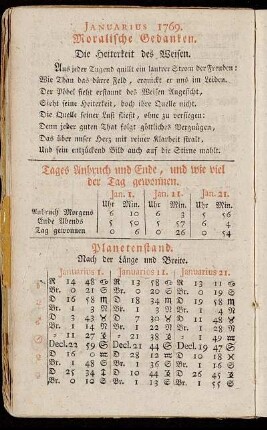 JANUARIUS 1769.
Moralische Gedanken.
Die Heiterkeit des Weisen.
Aus jeder Tugend quillt ein lautrer Strom der Freuden:
Wie Thau das dürre Feld, erquickt er uns im Leiden.
Der Pöbel sieht erstaunt des Weisen Angesicht,
Sieht seine Heiterkeit, doch ihre Quelle nicht.
Die Quelle seiner Lust fließt, ohne zu versiegen:
Denn jeder guten That folgt göttliches Vergnügen,
Das über unser Herz mit reiner Klarheit stralt,
Und sein entzückend Bild auch auf die Stirne mahlt.
Tages Anbruch und Ende, und wie viel
der Tag gewonnen.
Jan. 1. Jan. 11. Jan. 21.
Uhr Min. Uhr Min. Uhr Min.
Anbruch Morgens 6 10 6 3 5 56
Ende Abends 5 50 5 57 6 4
Tag gewonnen 0 6 0 26 0 54
Planetenstand.
Nach der Länge und Breite.
Januarius 1. Januarius 11. Januarius 21.
R 14 48 R 13 58 R 13 11
Br. 0 21 S Br. 0 20 S Br. 0 19 S
D 16 58 D 18 34 D 19 55
Br. 1 3 N Br. 1 4 N
D 3 43 D 7 11
Br. 1 14 N Br. 1 22 N
11 27
Decl. 22 59 S Decl. 21 44 S Decl. 19 47 S
D 16 0 D 28 12
Br. 0 48 S
D 25 34
Br. 0 10 S Br. 1 13 S Br. 1 55 S